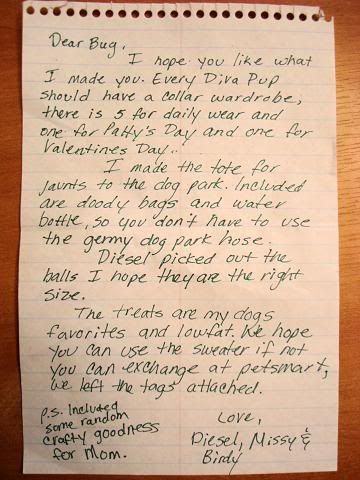 Dear Bug,
I hope you like what
I made you. Every Diva Pup
should have a collar wardrobe,
there is 5 for daily wear and
one for Patty's Day and one for
Valentines Day..
I made the tote for
jaunts to the dog park. Included
are doody bags and water
bottle, so you don't have to use
the germy dog park hose.
Diesel picked out the
balls I hope they are the right
size.
The treats are my dogs
favorites and lowfat. We hope
you can use the sweater if not
you can exchange at petsmart,
we left the tags attached.
Love,
Diesel, Missy &
Birdy
p.s. Included
some random
crafty goodness
for Mom.